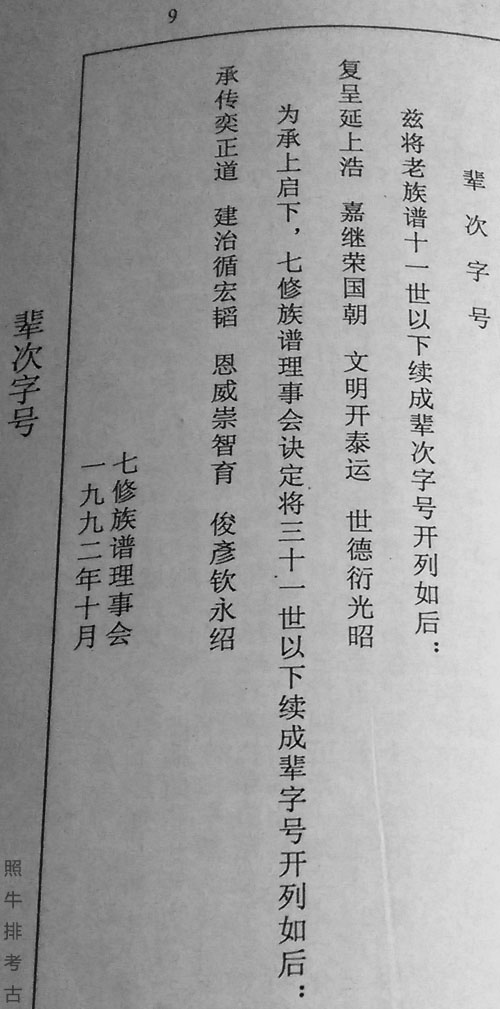 9
辈次字号
兹将老族谱十一世以下续成辈次字号开列如后：
复呈延上浩　嘉继荣国朝　文明开泰运　世德衍光昭
为承上启下，七修族谱理事会诀定将三十一世以下续成辈字号开列如后：
承传奕正道　建治循宏韬　恩威崇智育　俊彦钦永绍
七修族谱理事会
一九九二年十月
辈次字号
照牛排考古